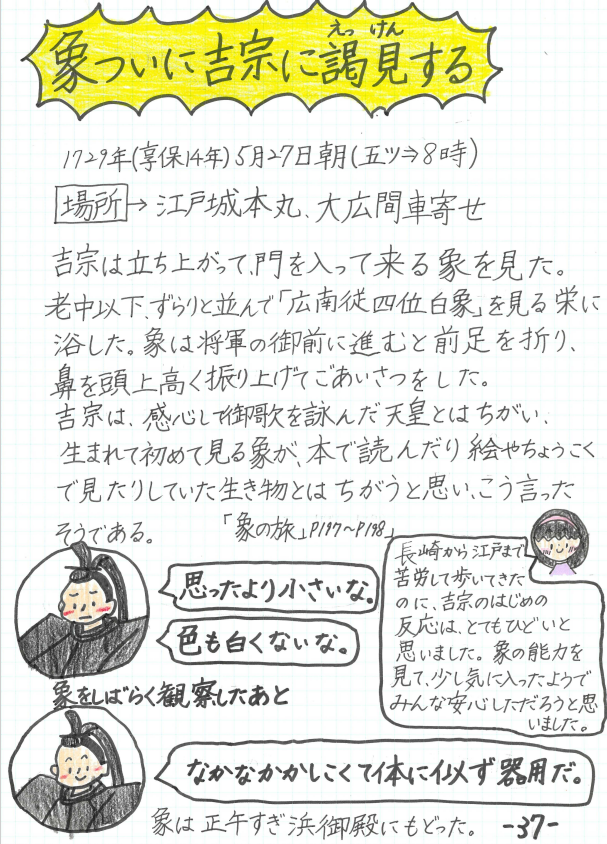 えっけん
象ついに吉宗に謁見する
1729年(享保14年)5月27日朝(五ツ⇒8時)
場所→江戸城本丸、大広間車寄せ
吉宗は立ち上がって、門を入って来る象を見た。
老中以下、ずらりと並んで「広南従四位白象」を見る栄に
浴した。象は将軍の御前に進むと前足を折り、
鼻を頭上高く振り上げてごあいさつをした。
吉宗は、感心して御歌を詠んだ天皇とはちがい、
生まれて初めて見る象が、本で読んだり絵やちょうこく
で見たりしていた生き物とはちがうと思い、こう言った
そうである。 「象の旅」P197〜P198」
思ったより小さいな。
色も白くないな。
長崎から江戸まで
苦労して歩いてきた
のに、吉宗のはじめの
反応は、とてもひどいと
思いました。象の能力を
見て、少し気に入ったようで
みんな安心しただろうと思
いました。
象をしばらく観察したあと
なかなかかしこくて体に似ず器用だ。
象は正午すぎ浜御殿にもどった。 -37-